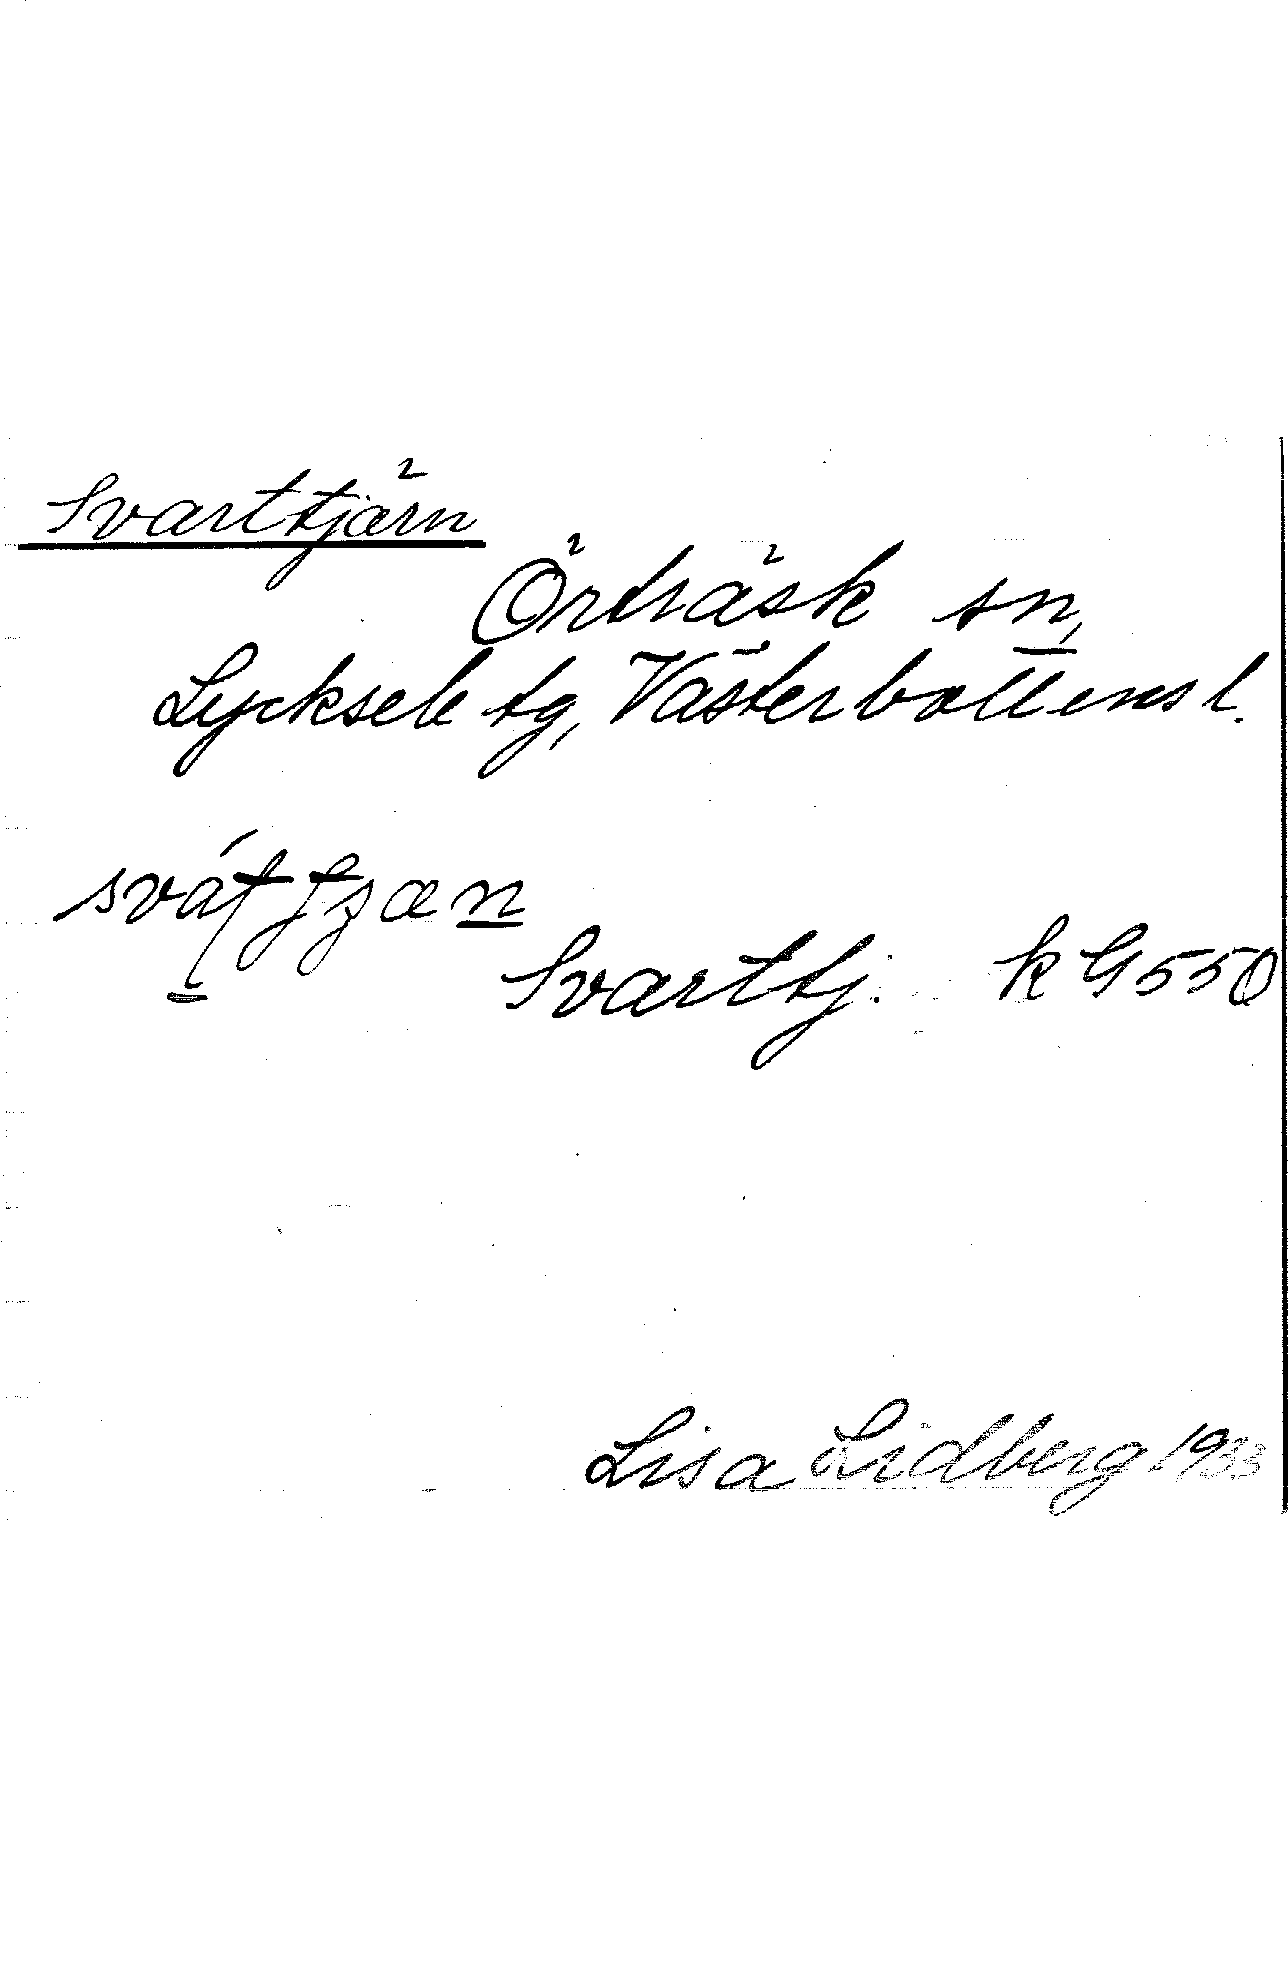 Svarttjärn
Örträsk sn,
Lycksele tg, Västerbottens l.
Svarttj. k G 550
Lisa Lidberg 1933